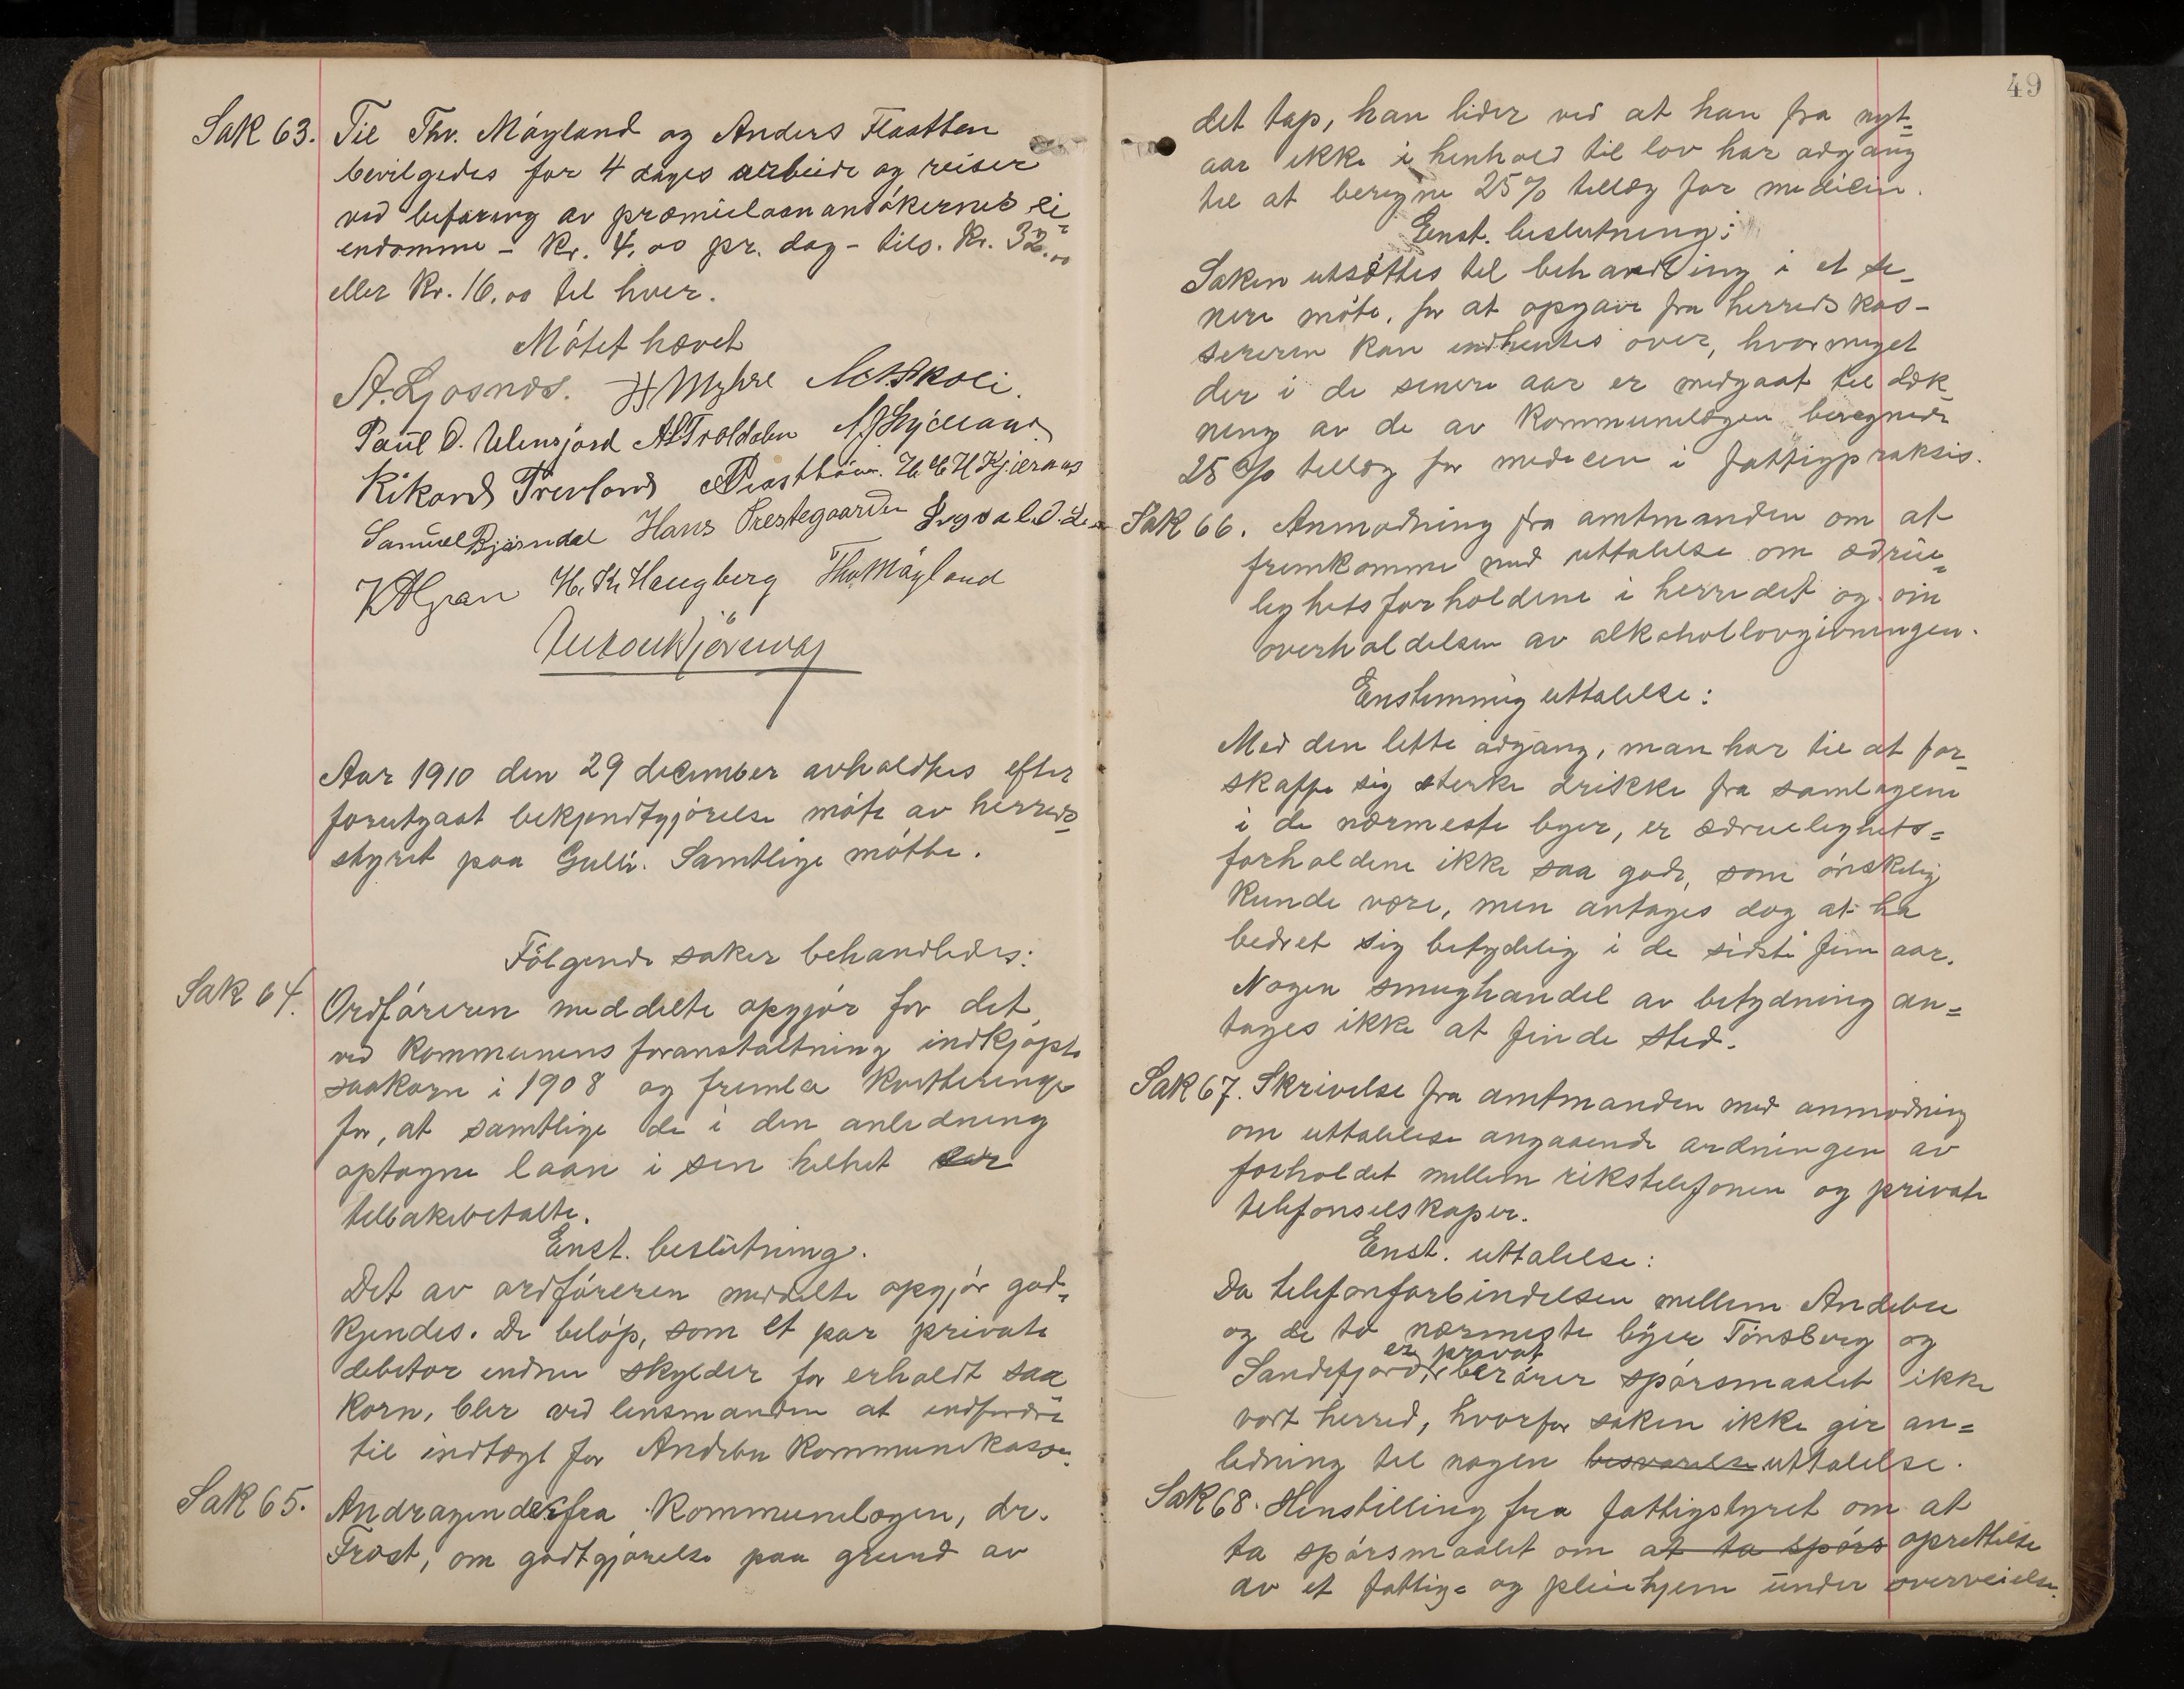 Sak 63. Til Thv. Møyland og Anders Flaatten
bevilgedes for 4 dages arbeide og reiser
ved befaring av præmielaanansøkernes ei=
endomme – Kr. 4,00 pr. dag – tils. Kr. 32.00
eller Kr. 16,00 til hver.
Møtet hævet
A. Ljosnæs. H Myhre
Paul O. Ulensjord
Rikard Trevland
Samuel Bjørndal Hans Prestegaarden
H. Kr. Haugberg Thv. Møyland
Aar 1910 den 29 december avholdtes efter
forutgaat bekjendtgjørelse møte av herreds=
styret paa Gulli. Samtlige møtte.
Følgende saker behandledes:
Sak 64. Ordføreren meddelte opgjør for det
ved kommunens foranstaltning indkjøpte
saakorn i 1908 og fremla kvitteringer
for, at samtlige de i den anledning
optagne laan i sin helhet
tilbakebetalte.
Enst. beslutning.
Det av ordføreren meddelte opgjør god=
kjendes. De beløp, som et par private
debitor endnu skylder for erholdt saa
korn, blir ved lensmanden at indfordre
til indtægt for Andebu kommunekasse.
Sak 65. Andragende fra kommunelægen, dr.
Frøst, om godtgjørelse paa grund av
49
det tap, han lider ved at han fra nyt=
aar ikke i henhold til lov har adgang
til at beregne 25% tillæg for medicin.
Enst. beslutning:
Saken utsættes til behandling i et se-
nere møte, for at opgave fra herredskas-
sereren kan indhentes over, hvormeget
der i de senere aar er medgaat til dæk
ning av de av kommunelægen beregnede
25 % tillæg for medicin i fattigpraksis.
Sak 66. Anmodning fra amtmanden om at
fremkomme med uttalelse om ædrue=
lighetsforholdene i herredet og om
overholdelsen av alkohollovgivningen.
Enstemmig uttalelse:
Med den lette adgang, man har til at for-
skaffe sig sterke drikke fra samlagene
i de nærmeste byer, er ædruelighets=
forholdene ikke saa gode, som ønskelig
kunde være, men antages dog at ha
bedret sig betydelig i de sidste fem aar.
Nogen smughandel av betydning an=
tages ikke at finde sted.
Sak 67. Skrivelse fra amtmanden med anmodning
om uttalelse angaaende ordningen av
forholdet mellem rikstelefonen og private
telefonselskaper.
Enst. uttalelse:
Da telefonforbindelsen mellem Andebu
og de to nærmeste byer Tønsberg og
er privat
Sandefjord, berører spørsmaalet ikke
vort herred, hvorfor saken ikke gir an=
ledning til nogen besvarelse uttalelse.
Sak 68. Henstilling fra fattigstyret om at
ta spørsmaalet om at ta spørs oprettelse
av et fattig= og pleiehjem under overveielse.